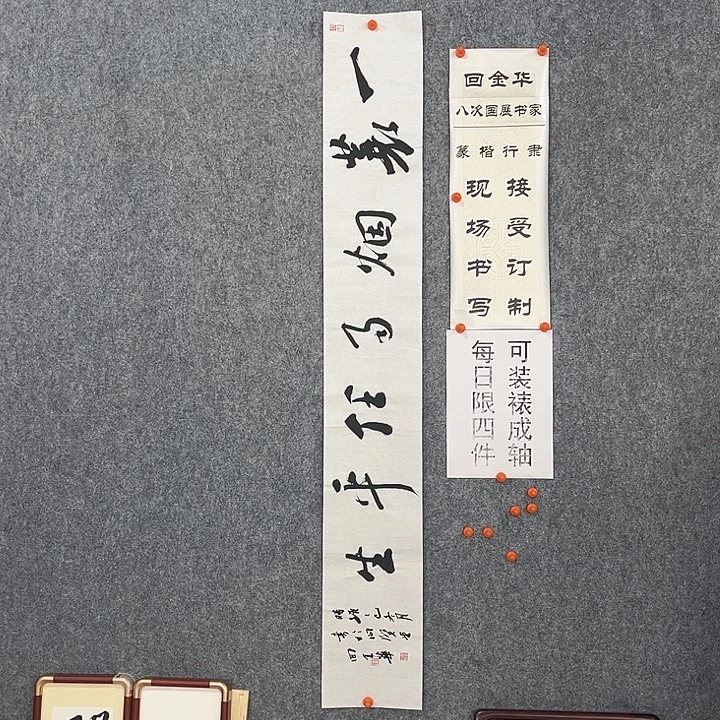 一蓑烟雨任平生
回金华
八次国展书家
篆楷行隶
接受订制
现场书写
可装裱成轴
每日限四件